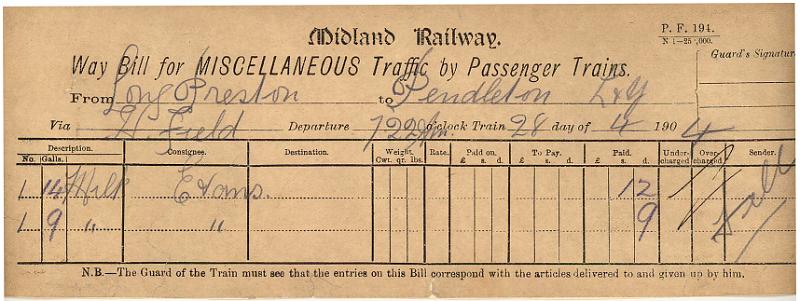 Midland Railway.
P. F. 194.
N 1—25,000.
Guard's Signature
Way Bill for MISCELLANEOUS Traffic by Passenger Trains.
From Long Preston to Pendleton L&Y
Via H. Field Departure 722 pm. o'clock Train 28 day of 4 1904
Description. Consignee. Destination. Weight. Rate. Paid on. To Pay. Paid. Under-charged Over-charged. Sender.
No. Galls. Cwt. qr. lbs. £ s. d. £ s. d. £ s. d.
1 14 Milk Evans. 12
1 9 " " 9
N.B.—The Guard of the Train must see that the entries on this Bill correspond with the articles delivered to and given up by him.